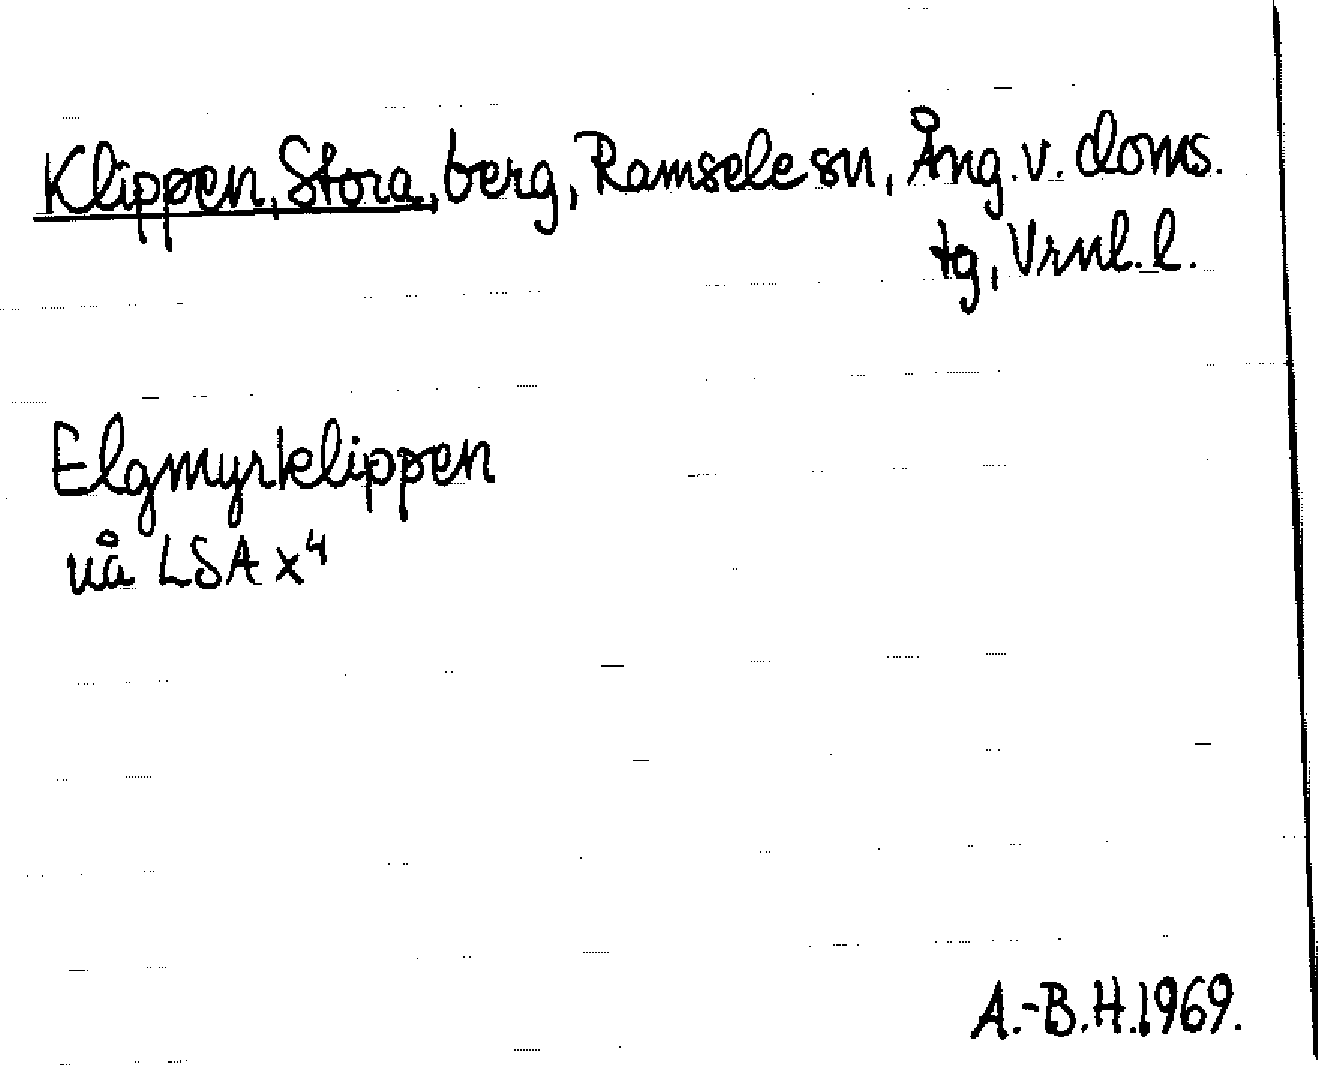 Klippen, Stora, berg, Ramsele sn, Ång. v. doms.
tg, Vrnl. l.
Elgmyrklippen
uå LSA x⁴
A.-B.H. 1969.